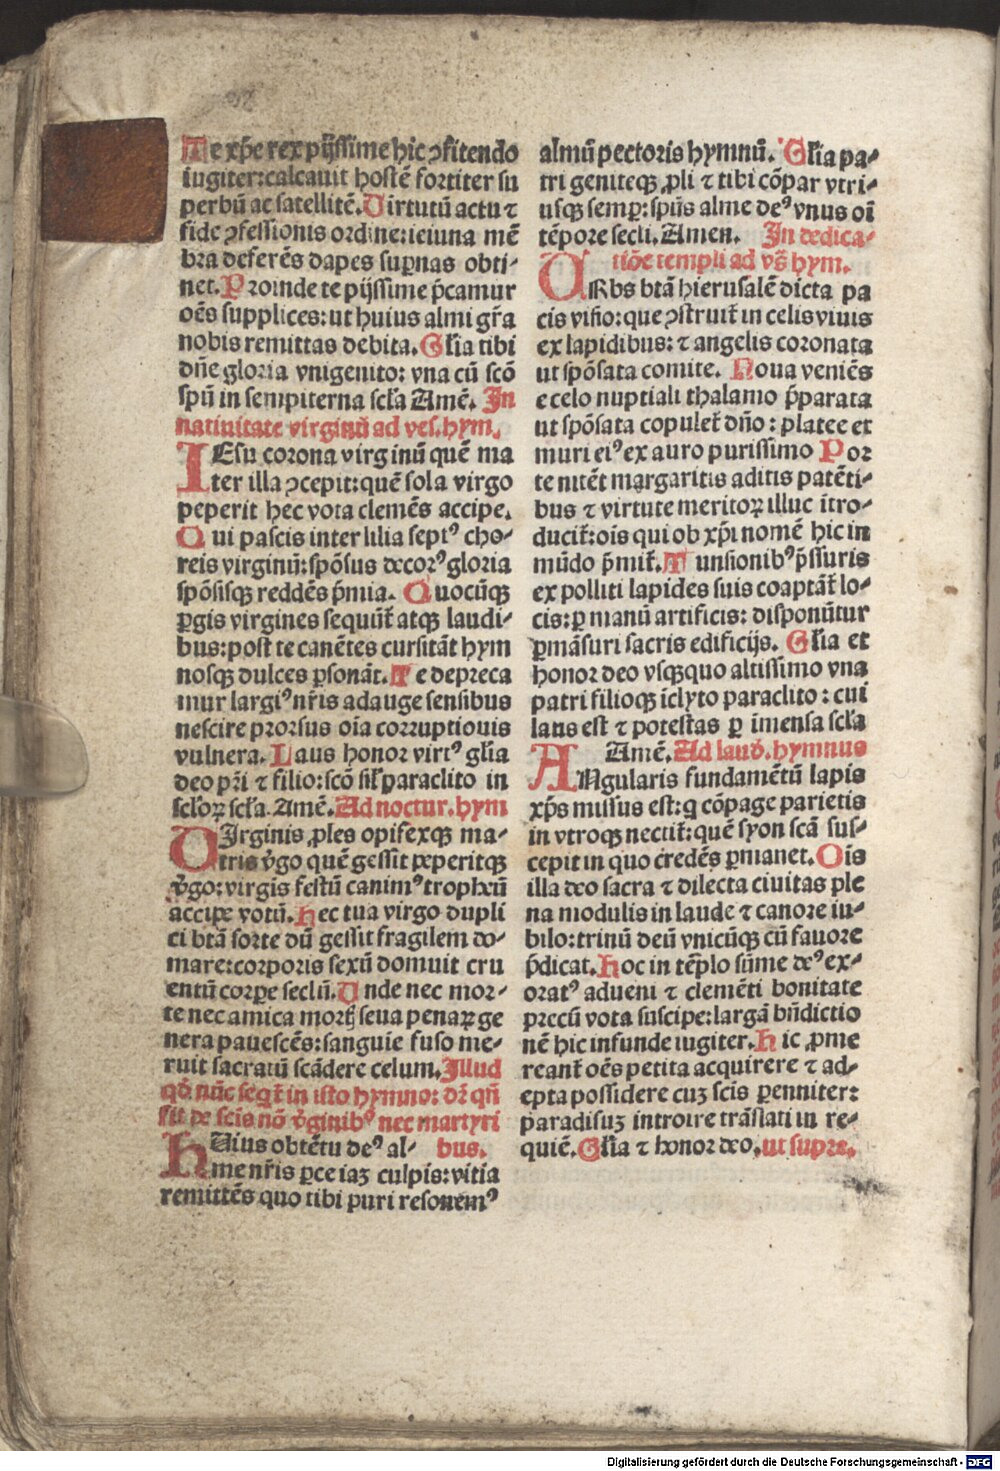 Te xp̄e rex pijssime hic ꝯfitendo
iugiter: calcauit hostē fortiter su
perbū ac satellitē. Uirtutū actu ⁊
fide ꝯfessionis ordine: ieiuna mē
bra deferēs dapes supnas obti⸗
net. Proinde te pijssime p̄camur
oēs supplices: ut huius almi gr̄a
nobis remittas debita. Gl̄ia tibi
dn̄e gloria vnigenito: vna cū scō
spū in sempiterna scl̄a Amē. In
natiuitate virginū ad ves. hym.
IEsu corona virginū quē ma
ter illa ꝯcepit: quē sola virgo
peperit hec vota clemēs accipe.
Qui pascis inter lilia septꝰ cho⸗
reis virginū: spōsus decorꝰ gloria
spōsisqꝫ reddēs p̄mia. Quocūqꝫ
ꝑgis virgines sequūt̄ atqꝫ laudi⸗
bus: post te canētes cursitāt hym
nosqꝫ dulces ꝑsonāt. Te depreca
mur largiꝰ nr̄is adauge sensibus
nescire prorsus oīa corruptiouis
vulnera. Laus honor virtꝰ gl̄ia
deo pr̄i ⁊ filio: scō sil̄ paraclito in
scl̄oꝝ scl̄a. Amē. Ad noctur. hym
UIrginis ꝓles opifexqꝫ ma⸗
tris v̄go quē gessit peperitqꝫ
v̄go: virgis festū canimꝰ tropheū
accipe votū. Hec tua virgo dupli
ci btā sorte dū gessit fragilem do⸗
mare: corporis sexū domuit cru
entū corpe seclū. Unde nec mor⸗
te nec amica mortꝭ seua penaꝝ ge
nera pauescēs: sanguie fuso me⸗
ruit sacratū scādere celum. Illud
qd̄ nūc seqt̄ in isto hymno: dr̄ qn̄
fit de scis nō v̄ginibꝰ nec martyri
bus.
HUius obtētu deꝰ al⸗
me nr̄is ꝑce iaꝫ culpis: vitia
remittēs quo tibi puri resonemꝰ
almū pectoris hymnū. Gl̄ia pa⸗
tri geniteqꝫ ꝓli ⁊ tibi cōpar vtri⸗
usqꝫ semp: spūs alme deꝰ vnus oī
tēpore secli. Amen. In dedica⸗
tiōe templi ad vs̄ hym.
URbs btā hierusalē dicta pa
cis visio: que ꝯstruit̄ in celis viuis
ex lapidibus: ⁊ angelis coronata
ut spōsata comite. Noua veniēs
e celo nuptiali thalamo p̄parata
ut spōsata copulet̄ dn̄o: platee et
muri eiꝰ ex auro purissimo Por
te nitēt margaritis aditis patēti⸗
bus ⁊ virtute meritoꝝ illuc ītro⸗
ducit̄: ois qui ob xp̄i nomē hic in
mūdo p̄mit̄. Tunsionibꝰ p̄ssuris
expoliti lapides suis coaptāt̄ lo⸗
cis: ꝑ manū artificis: disponūtur
ꝑmāsuri sacris edificijs. Gl̄ia et
honor deo vsqꝫquo altissimo vna
patri filioqꝫ īclyto paraclito: cui
laus est ⁊ potestas ꝑ īmensa scl̄a
Amē. Ad laud. hymnus
ANgularis fundamētū lapis
xp̄s missus est: q cōpage parietis
in vtroqꝫ nectit̄: quē syon scā sus⸗
cepit in quo credēs ꝑmanet. Oīs
illa deo sacra ⁊ dilecta ciuitas ple
na modulis in laude ⁊ canore iu⸗
bilo: trinū deū vnicūqꝫ cū fauore
p̄dicat. Hoc in tēplo sūme deꝰ ex⸗
oratꝰ adueni ⁊ clemēti bonitate
precū vota suscipe: largā bn̄dictio
nē hic infunde iugiter. Hic ꝓme
reant̄ oēs petita acquirere ⁊ ad⸗
epta possidere cuꝫ scis ꝑenniter:
paradisuꝫ introire trāslati in re⸗
quiē. Gl̄ia ⁊ honor deo. ut supre.
Digitalisierung gefördert durch die Deutsche Forschungsgemeinschaft - DFG